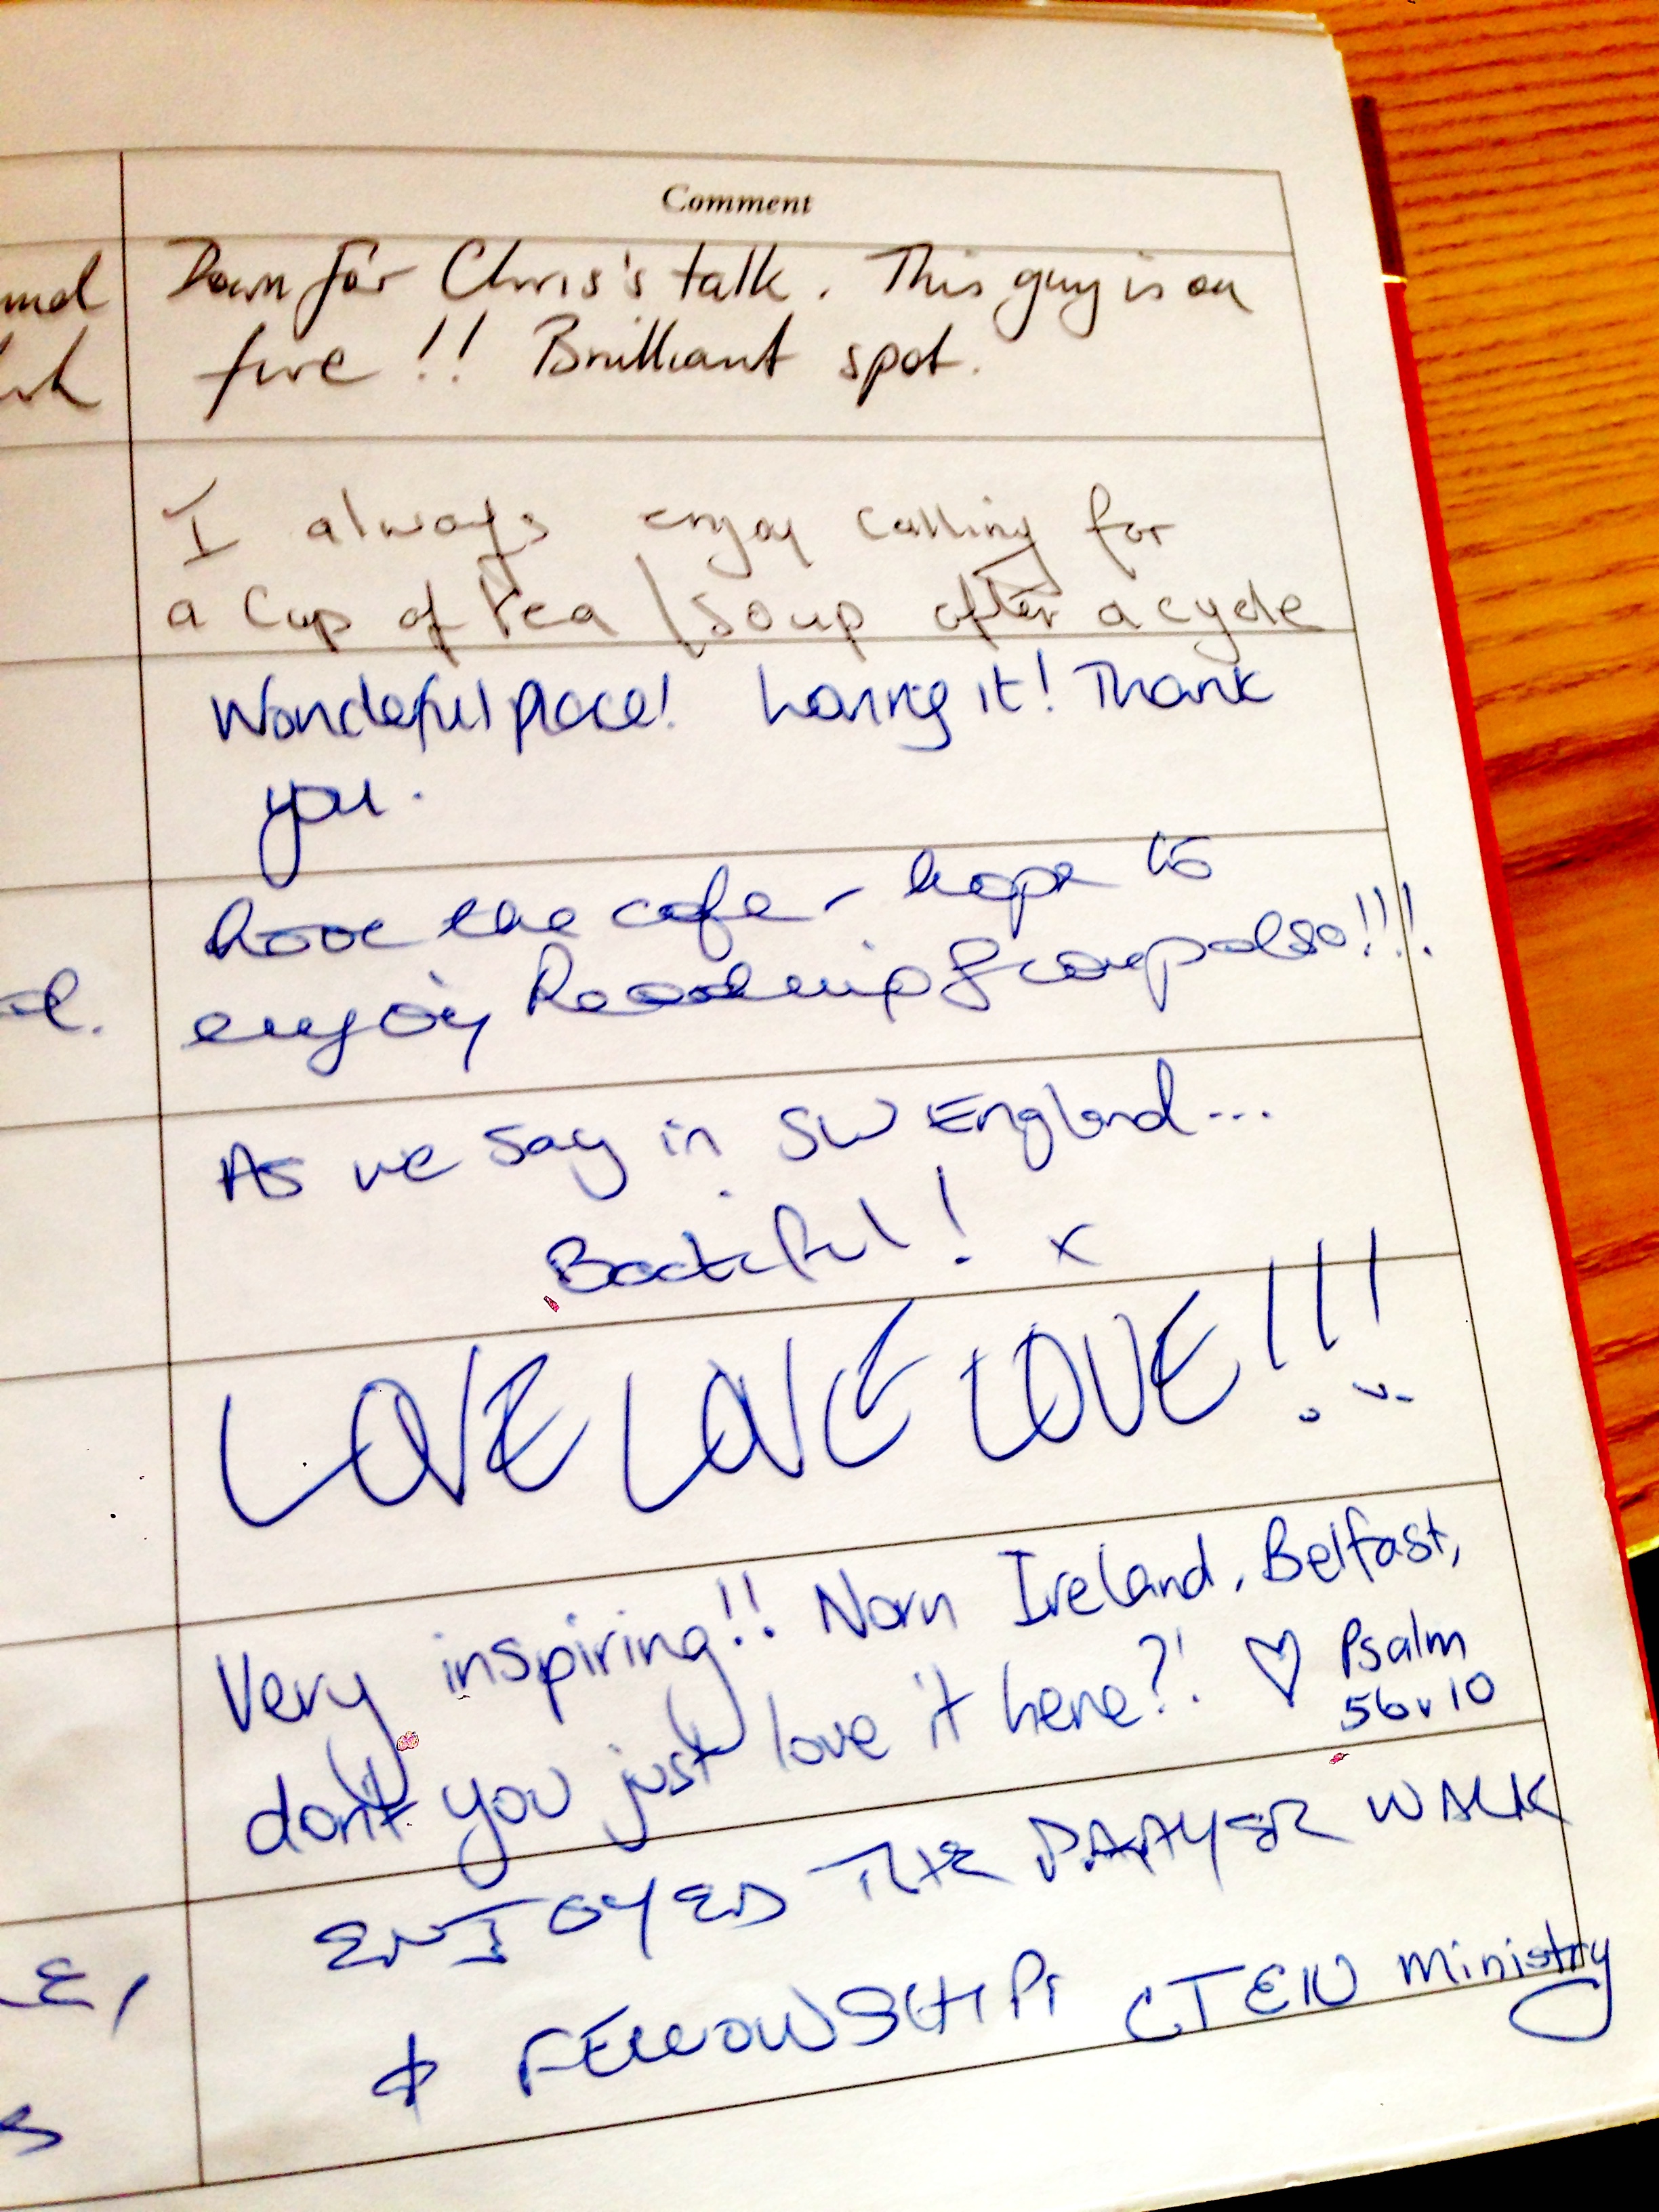 Comment
Down for Chris's talk. This guy is on
fire!! Brilliant spot.
I always enjoy calling for
a cup of tea / soup after a cycle
Wonderful place! Loving it! Thank
you.
Love the cafe - hope to
enjoy Reading Group also!!!
As we say in SW England...
Bootiful! x
LOVE LOVE LOVE!!!
Very inspiring!! Norn Ireland, Belfast,
don't you just love it here?! ♡ Psalm
56v10
ENJOYED THE PRAYER WALK
& FELLOWSHIP. CTEN ministry